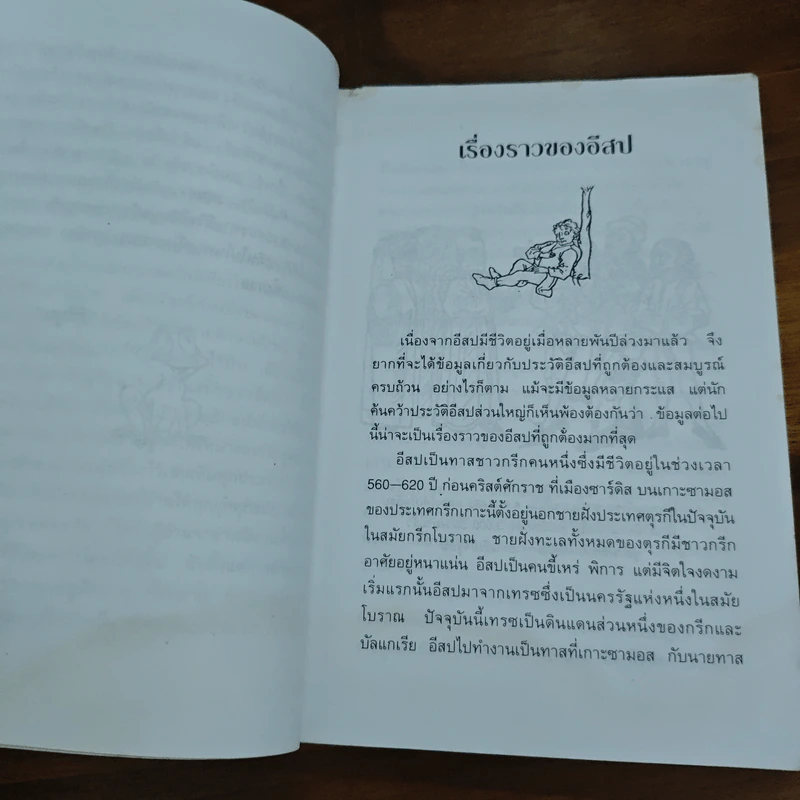 เรื่องราวของอีสป
เนื่องจากอีสปมีชีวิตอยู่เมื่อหลายพันปีล่วงมาแล้ว จึง
ยากที่จะได้ข้อมูลเกี่ยวกับประวัติอีสปที่ถูกต้องและสมบูรณ์
ครบถ้วน อย่างไรก็ตาม แม้จะมีข้อมูลหลายกระแส แต่นัก
ค้นคว้าประวัติอีสปส่วนใหญ่ก็เห็นพ้องต้องกันว่า ข้อมูลต่อไป
นี้น่าจะเป็นเรื่องราวของอีสปที่ถูกต้องมากที่สุด
อีสปเป็นทาสชาวกรีกคนหนึ่งซึ่งมีชีวิตอยู่ในช่วงเวลา
560–620 ปี ก่อนคริสต์ศักราช ที่เมืองซาร์ดิส บนเกาะซามอส
ของประเทศกรีกเกาะนี้ตั้งอยู่นอกชายฝั่งประเทศตุรกีในปัจจุบัน
ในสมัยกรีกโบราณ ชายฝั่งทะเลทั้งหมดของตุรกีมีชาวกรีก
อาศัยอยู่หนาแน่น อีสปเป็นคนขี้เหร่ พิการ แต่มีจิตใจงดงาม
เริ่มแรกนั้นอีสปมาจากเทรซซึ่งเป็นนครรัฐแห่งหนึ่งในสมัย
โบราณ ปัจจุบันนี้เทรซเป็นดินแดนส่วนหนึ่งของกรีกและ
บัลแกเรีย อีสปไปทำงานเป็นทาสที่เกาะซามอส กับนายทาส